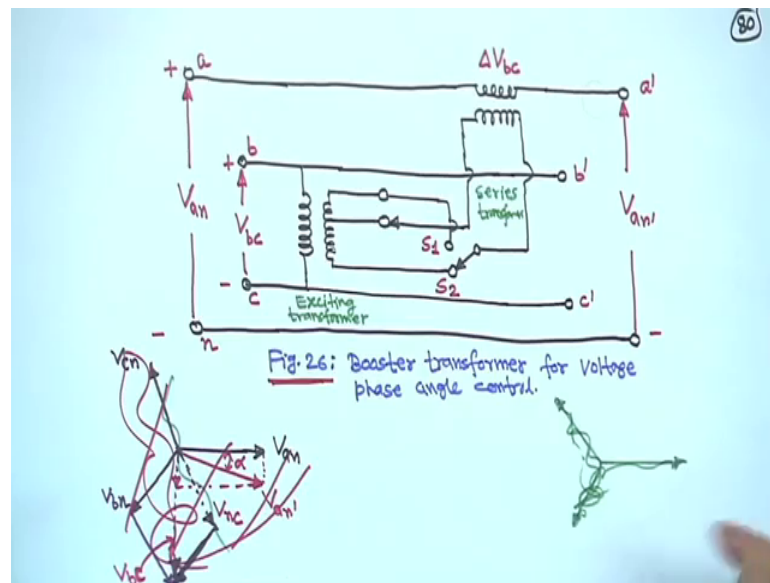 80
+ a
ΔVbc
a'
+ b
b'
Van
Vbc
series
transform
Van'
S1
S2
- c
Exciting
transformer
c'
- n
-
Fig. 26: Booster transformer for voltage
phase angle control.
Vcn
Van
α
Vbn
Vnc
Van'
Vbc